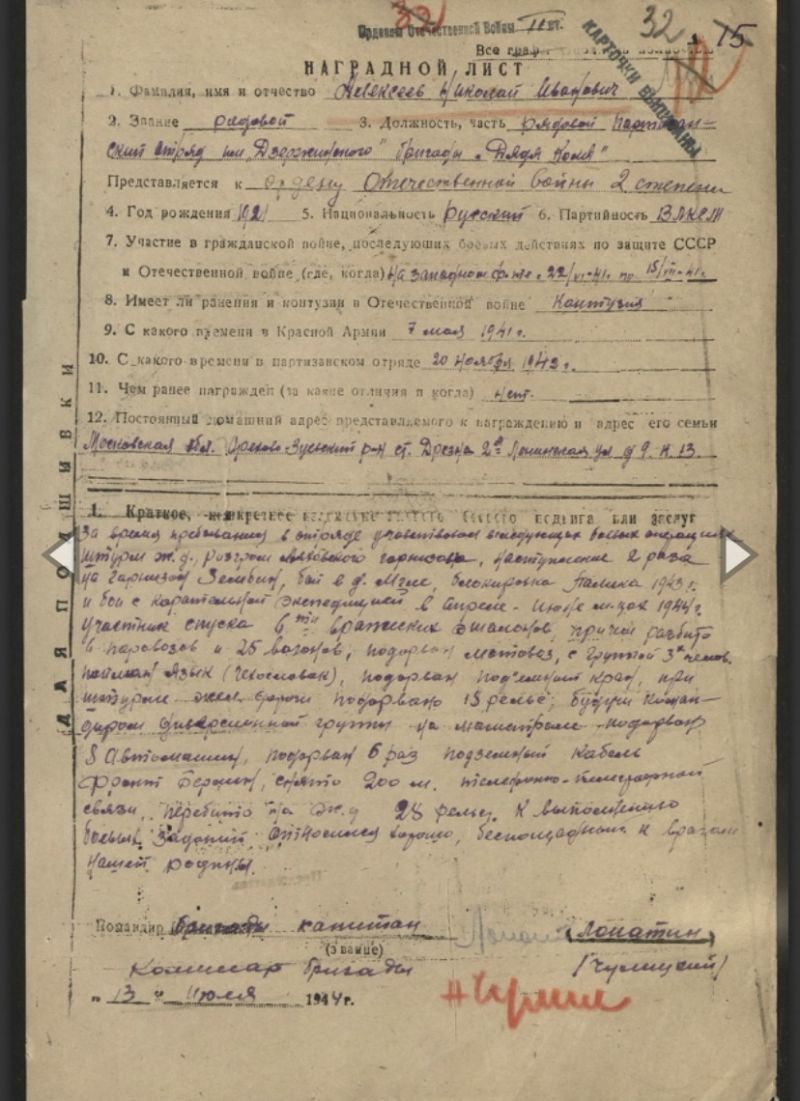 32
Орденом Отечественной Войны II ст.
32 15
КАРТОЧКИ ВЫПИСАНЫ
Все
НАГРАДНОЙ ЛИСТ
1. Фамилия, имя и отчество Алексеев Николай Иванович
2. Звание рядовой 3. Должность, часть рядовой партизан-
ский отряд им. "Дзержинского" бригады "Дядя Коля"
Представляется к ордену Отечественной войны 2 степени
4. Год рождения 1921 5. Национальность русский 6. Партийность ВЛКСМ
7. Участие в гражданской войне, последующих боевых действиях по защите СССР
и Отечественной войне (где, когда) на западном фронте с 22/VI-41г. по 15/
8. Имеет ли ранения и контузии в Отечественной войне Контузия
9. С какого времени в Красной Армии 7 мая 1941г.
10. С какого времени в партизанском отряде 20 ноября 1943г.
11. Чем ранее награжден (за какие отличия и когда) нет.
12. Постоянный домашний адрес представляемого к награждению и адрес его семьи
Московская обл. Орехово-Зуевский р-н ст. Дрезна 2я Ленинская ул д 9. к 13.
ДЛЯ ПОДШИВКИ
1. Краткое, конкретное изложение личного боевого подвига или заслуг
За время пребывания в отряде участвовал в следующих боевых операциях
штурм ж.д., разгром гарнизона, наступление 2 раза
на гарнизон Зембин, бой в д. Мгле, блокировка Палика 1943г.
и бои с карательной экспедицией в апреле-июне м-цах 1944г.
участник спуска 6ти вражеских эшелонов, причем разбито
6 паровозов и 25 вагонов, подорван мотовоз, с группой 3х человек
пойман язык (чехословак), подорван подъемный кран, при
штурме жел. дороги подорвано 15 рельс; будучи коман-
диром диверсионной группы на магистрале подорвал
8 автомашин, подорван 6 раз подземный кабель
фронт Берлин, снято 200 м. телефонно-телеграфной
связи, перебито на ж.д. 28 рельс. К выполнению
боевых заданий относился хорошо, беспощадным к врагам
нашей родины.
Командир бригады капитан Лопатин (Лопатин)
(звание)
Комиссар бригады
"13" июля 1944г.